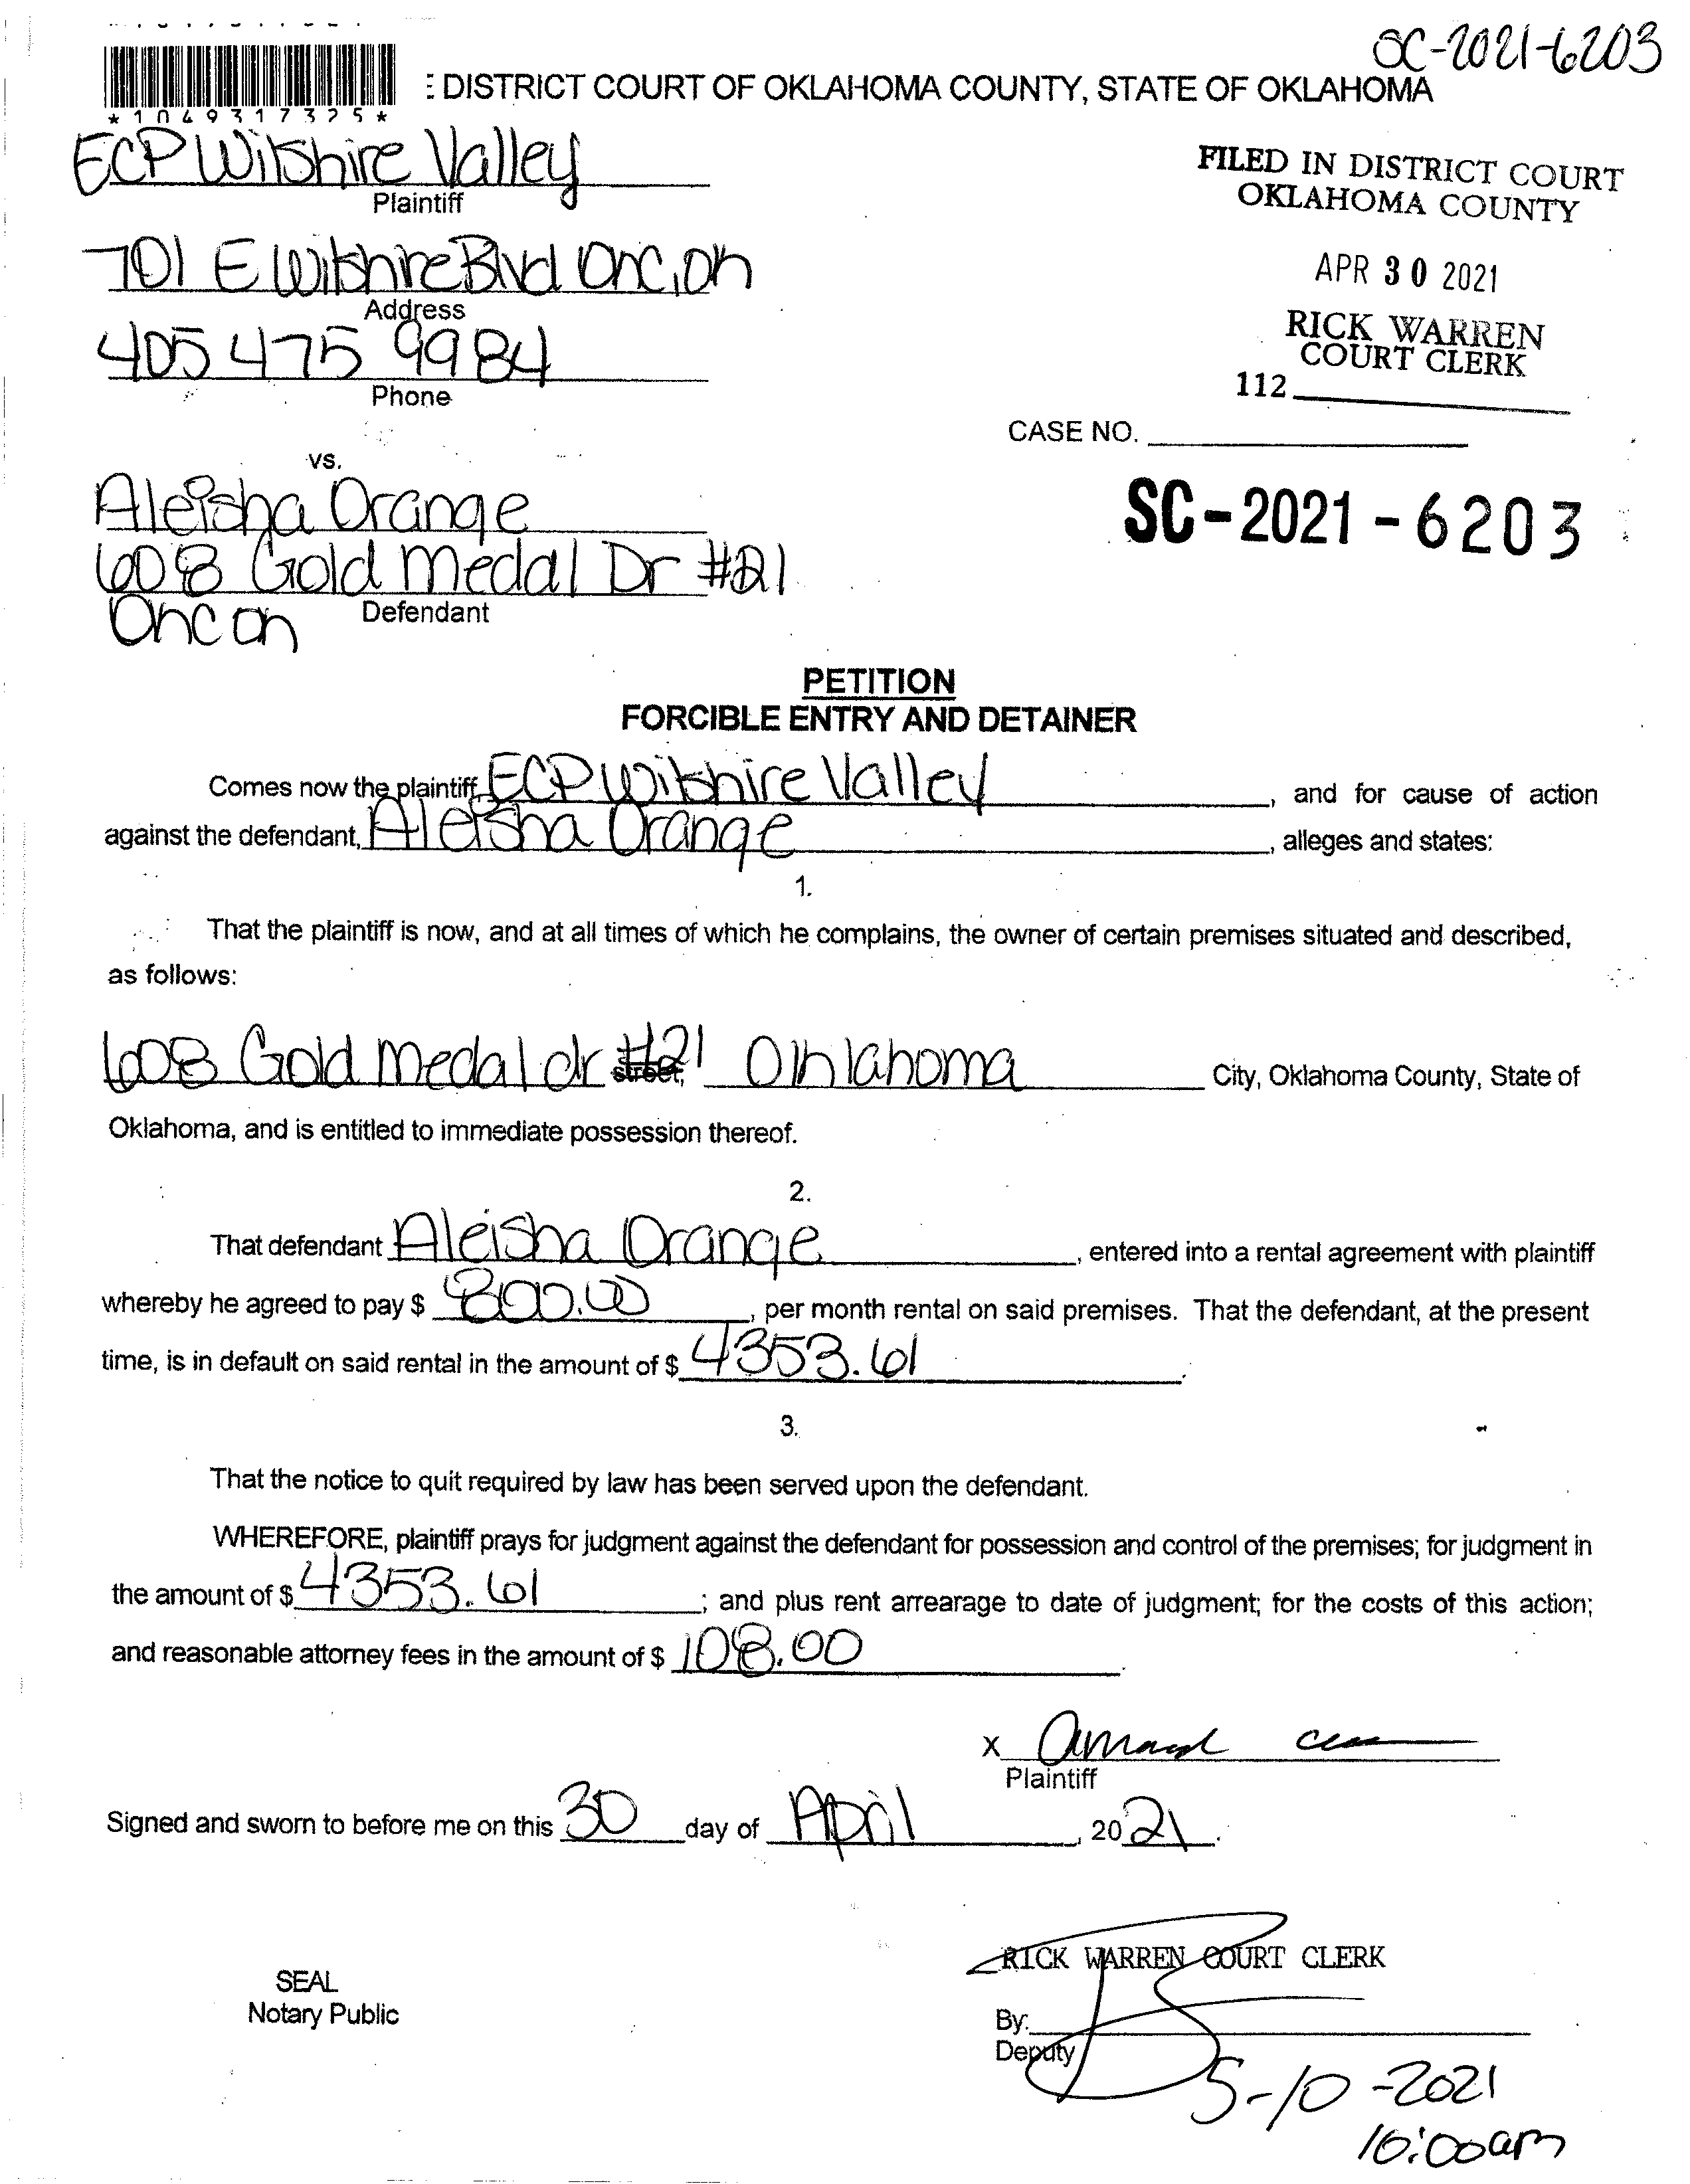 SC-2021-6203
: DISTRICT COURT OF OKLAHOMA COUNTY, STATE OF OKLAHOMA
*1049317325*
ECP Wilshire Valley
Plaintiff
FILED IN DISTRICT COURT
OKLAHOMA COUNTY
701 E Wilshire Blvd OKC, OK
Address
APR 30 2021
405 475 9984
Phone
RICK WARREN
COURT CLERK
112
CASE NO.
vs.
Aleisha Orange
SC-2021-6203
608 Gold Medal Dr #21
Defendant
OKC OK
PETITION
FORCIBLE ENTRY AND DETAINER
Comes now the plaintiff, ECP Wilshire Valley, and for cause of action
against the defendant, Aleisha Orange, alleges and states:
1.
That the plaintiff is now, and at all times of which he complains, the owner of certain premises situated and described,
as follows:
608 Gold Medal dr #21 street, Olhlahoma City, Oklahoma County, State of
Oklahoma, and is entitled to immediate possession thereof.
2.
That defendant Aleisha Orange, entered into a rental agreement with plaintiff
whereby he agreed to pay $ 800.00, per month rental on said premises. That the defendant, at the present
time, is in default on said rental in the amount of $ 4353.61.
3.
That the notice to quit required by law has been served upon the defendant.
WHEREFORE, plaintiff prays for judgment against the defendant for possession and control of the premises; for judgment in
the amount of $ 4353.61; and plus rent arrearage to date of judgment; for the costs of this action;
and reasonable attorney fees in the amount of $ 108.00.
X
Plaintiff
Signed and sworn to before me on this 30 day of April, 2021.
RICK WARREN COURT CLERK
SEAL
Notary Public
By:
Deputy
5-10-2021
10:00am